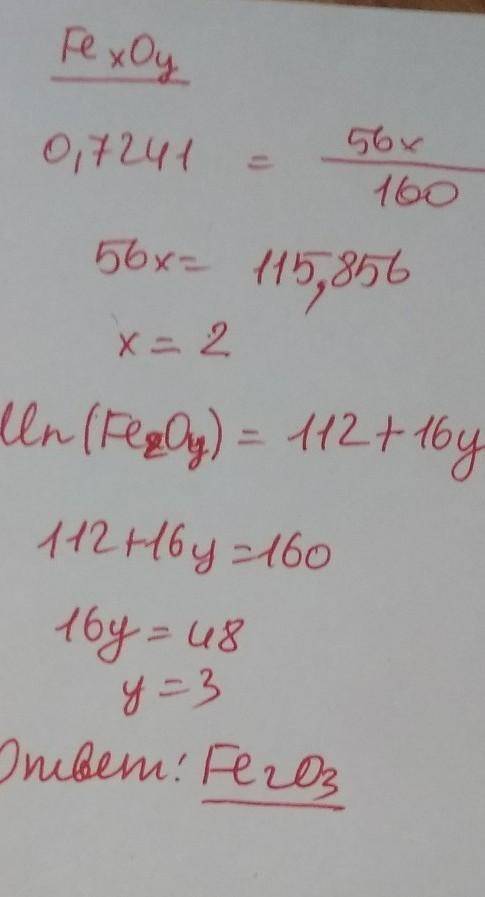 FexOy
0,7241 = 56x / 160
56x = 115,856
x = 2
Mr(Fe2Oy) = 112 + 16y
112 + 16y = 160
16y = 48
y = 3
Ответ: Fe2O3